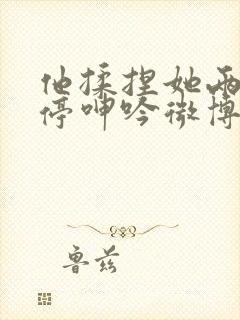 他揉捏她两
停呻吟微博
鲁兹